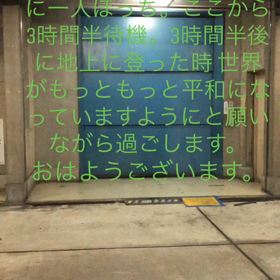 に一人ぼっち。ここから
3時間半待機。3時間半後
に地上に登った時 世界
がもっともっと平和にな
っていますようにと願い
ながら過ごします。
おはようございます。